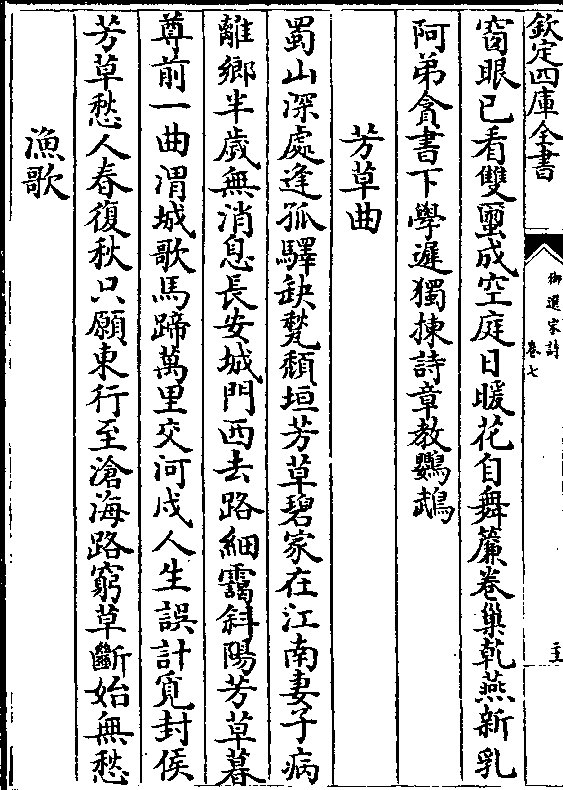 欽定四庫全書
御選宋詩
卷七
窗眼已看雙蠒成空庭日暖花自舞簾卷巢乾燕新乳
阿弟貪書下學遲獨揀詩章教鸚鵡
芳草曲
蜀山深處逢孤驛缺甃頽垣芳草碧家在江南妻子病
離鄉半歲無消息長安城門西去路細靄斜陽芳草暮
尊前一曲渭城歌馬蹄萬里交河戍人生誤計覓封侯
芳草愁人春復秋只願東行至滄海路窮草斷始無愁
漁歌